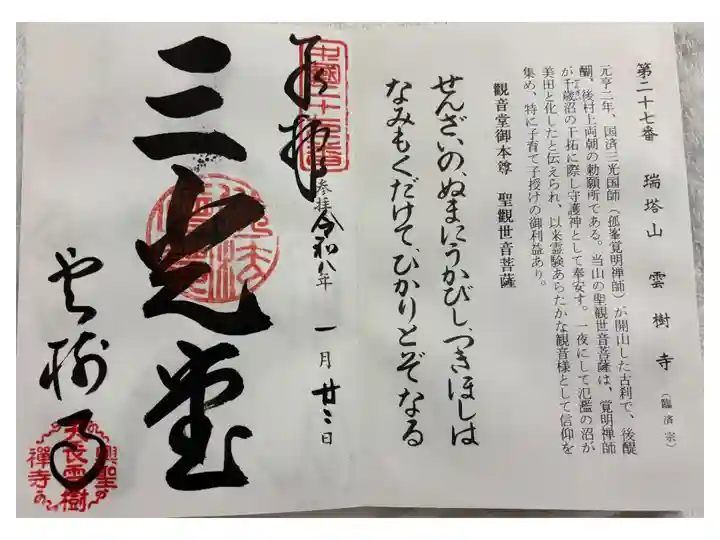 第二十七番　瑞塔山　雲樹寺（臨済宗）
元亨二年、国済三光国師（孤峯覚明禅師）が開山した古刹で、後醍
醐、後村上両朝の勅願所である。当山の聖観世音菩薩は、覚明禅師
が千歳沼の干拓に際し守護神として奉安す。一夜にして氾濫の沼が
美田と化したと伝えられ、以来霊験あらたかな観音様として信仰を
集め、特に子育て子授けの御利益あり。
観音堂御本尊　聖観世音菩薩
せんざいの、ぬまにうかびし、つきほしは
なみもくだけて、ひかりとぞなる
奉拝
参拝令和八年　一月　廿三日
三光堂
雲樹寺
中國二十七番
興聖
天長雲樹
禅寺